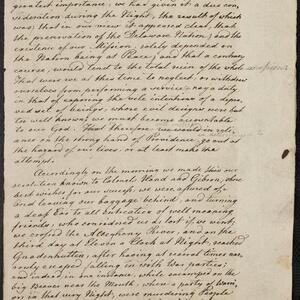 greatest importance; we has given it a due con-
sideration during the Night; the result of which
was; that in our view it appeared clear, that
the preservation of the Delaware Nation; and the
existence of our Mission, solely depended on
the Nation being at Peace; and that a contrary
course, would tend to the total ruin of the whole
That were we at this time to neglect, or withdraw
ourselves from performing a service, nay a duty,
in that of exposing the vile intentions of a depra-
ved set of beings, whose evil designs were but
too well known; we must become accountable
to our God. That therefore, we would in reli-
ance on the strong hand of Providence go out at
the hazard of our lives, or at least make the
attempt.
Accordingly on the morning we made this our
resolution known to Colonels Hand and Gibson, whose
best wishes for our success, we were assured of:
and leaving our baggage behind, and turning
a deaf Ear to all entreaties of well meaning
friends, who considered us as lost, if we went;
we crossed the Alleghany River, and on the
third day at Eleven o Clock at Night, reached
Gnadenhutten; after having at several times nar-
rowly escaped falling in with War parties,
and indeed in one instance, while encamped on the
big Beaver near the Mouth, where a party of Warri-
ors, on that very Night, were murdering People